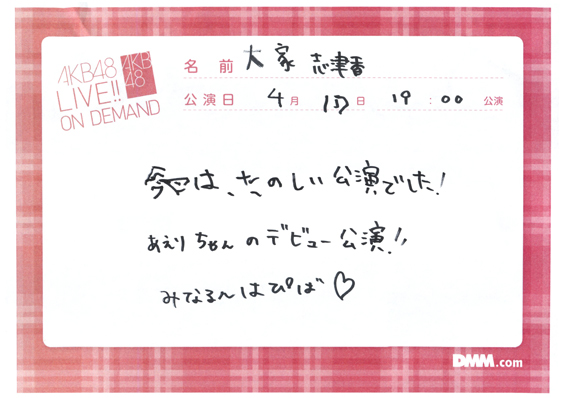 AKB48
LIVE!!
ON DEMAND
AKB
48
名前 大家 志津香
公演日 4月 17日 19:00 公演
今日は、たのしい公演でした!
あえりちゃんのデビュー公演!!
みなるんはぴば♡
DMM.com